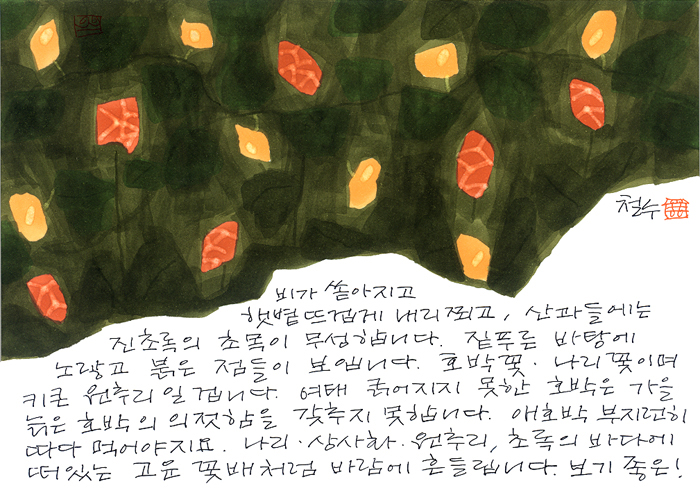 철수
비가 쏟아지고
햇볕 뜨겁게 내리쬐고, 산과들에는
진초록의 초목이 무성합니다. 짙푸른 바탕에
노랗고 붉은 점들이 보입니다. 호박꽃·나리꽃이며
키큰 원추리일겁니다. 여태 굵어지지 못한 호박은 가을
늙은 호박의 의젓함을 갖추지 못합니다. 애호박 부지런히
따다 먹어야지요. 나리·상사화·원추리, 초록의 바다에
떠있는 고운 꽃배처럼 바람에 흔들립니다. 보기 좋은!